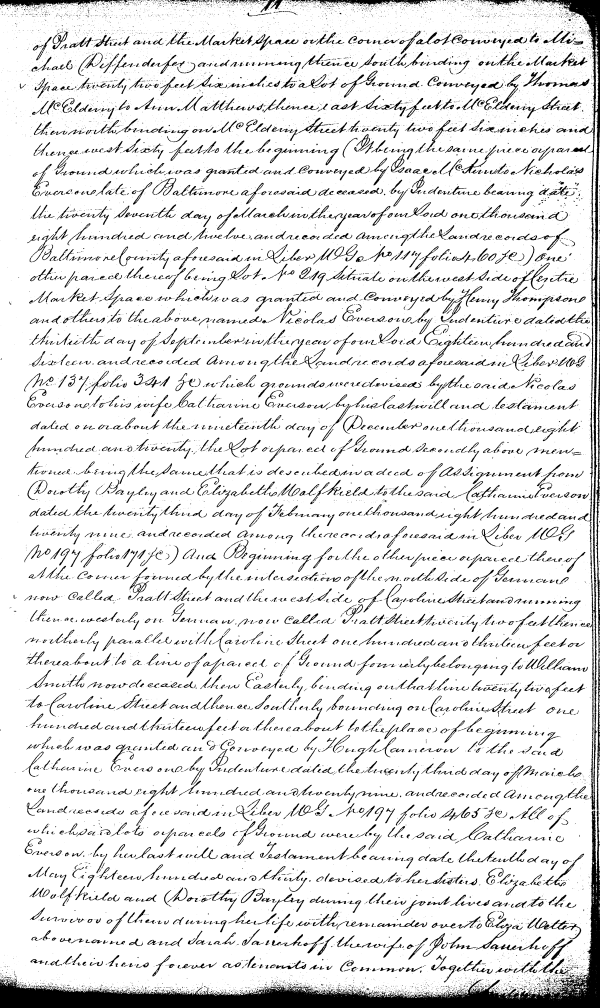 of Pratt Street and the Market Space or the corner of a lot conveyed to Mi-
chael Diffenderfer and running thence South binding on the Market
Space twenty two feet Six inches to a Lot of Ground Conveyed by Thomas
McElderry to Ann Matthews, thence East Sixty feet to McElderry Street
then north binding on McElderry Street twenty two feet six inches and
thence west Sixty feet to the beginning (It being the same piece or parcel
of Ground which was granted and conveyed by Isaac to Nicholas
Everson late of Baltimore aforesaid deceased by Indenture bearing date
the twenty Seventh day of March in the year of our Lord one thousand
eight hundred and twelve and recorded among the Land records of
Baltimore County aforesaid in Liber W G No 117 folio 460 &c) One
other parcel thereof being Lot No 219 Situate on the west Side of Centre
Market Space which was granted and Conveyed by Henry Thompson
and others to the above named Nicolas Everson by Indenture dated the
thirtieth day of September in the year of our Lord Eighteen hundred and
Sixteen and recorded Among the Land records aforesaid in Liber W G
No 137 folio 341 &c which grounds were devised by the said Nicolas
Everson to his wife Catharine Everson by his last will and testament
dated on or about the nineteenth day of December one thousand eight
hundred and twenty, the Lot or parcel of Ground Secondly above men-
tioned being the Same that is described in a deed of Assignment from
Dorothy Bayley and Elizabeth Wolfkield to the said Catharine Everson
dated the twenty third day of February one thousand eight hundred and
twenty nine and recorded among the records aforesaid in Liber W G
No 197 folio 171 &c) And Beginning for the other piece or parcel thereof
at the corner formed by the intersection of the north Side of German
now called Pratt Street and the west Side of Caroline Street and running
thence westerly on German now called Pratt Street twenty two feet thence
northerly parallel with Caroline Street one hundred and thirteen feet or
thereabout to a line of a parcel of Ground formerly belonging to William
Smith now deceased then Easterly binding on that line twenty two feet
to Caroline Street and thence Southerly bounding on Caroline Street one
hundred and thirteen feet or thereabout to the place of beginning
which was granted and Conveyed by Hugh Cameron to the said
Catharine Everson by Indenture dated the twenty third day of March
one thousand eight hundred and twenty nine and recorded Among the
Land records aforesaid in Liber W G No 197 folio 465 &c All of
which said lots or parcels of Ground were by the said Catharine
Everson by her last will and Testament bearing date the tenth day of
May Eighteen hundred and thirty devised to her Sisters Elizabeth
Wolfkield and Dorothy Bayley during their joint lives and to the
Survivor of them during her life with remainder over to Eliza
above named and Sarah Sauerhoff the wife of John Sauerhoff
and their heirs forever as tenants in Common. Together with the